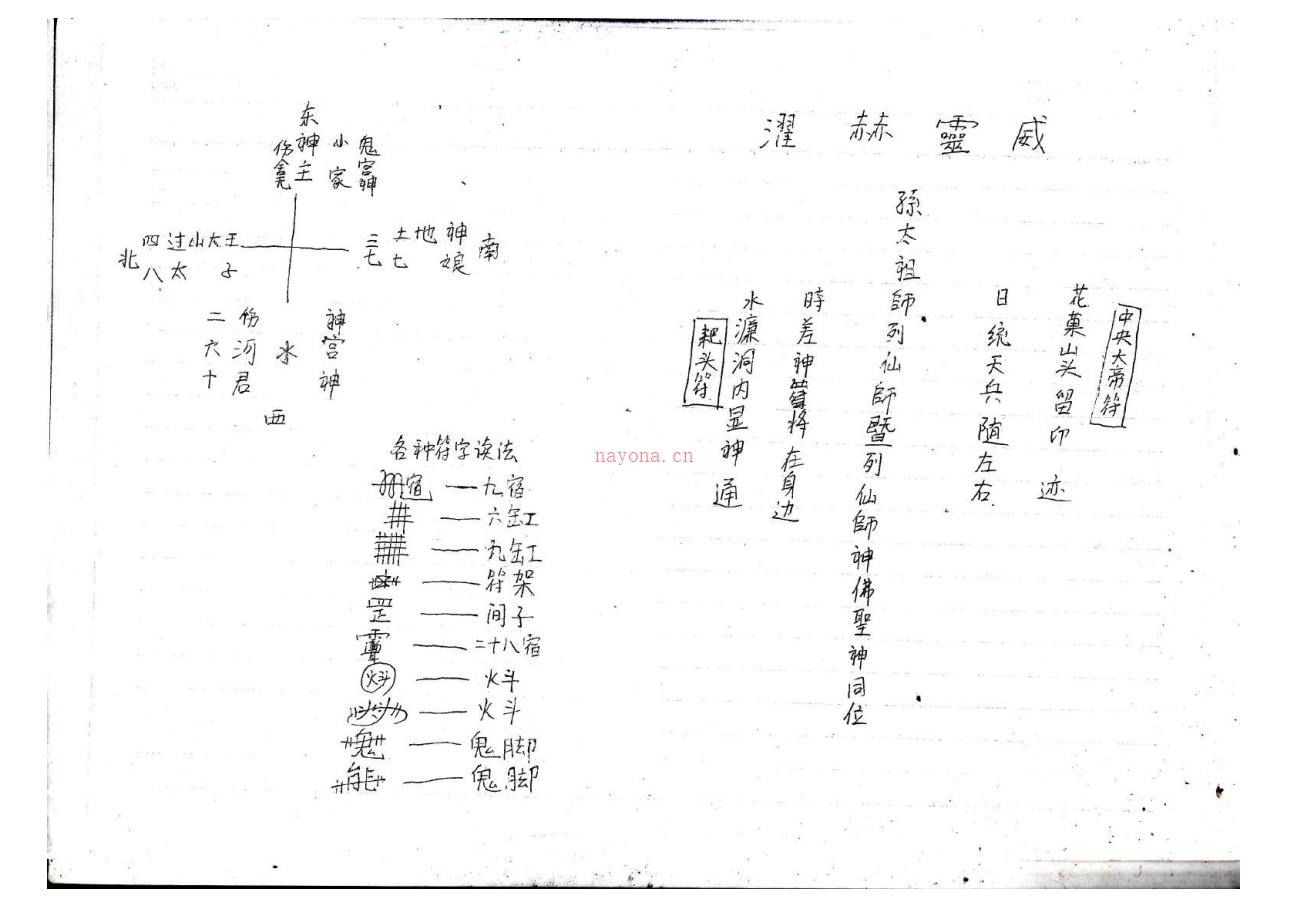 威靈赫濯
中央大帝符
花菓山头留印迹
日统天兵随左右
孫太祖師列仙師暨列仙師神佛聖神同位
時差神將在身边
水濂洞内显神通
耙头符
东
神主
小家
鬼宫神
北
四过山大王
八太子
三土地神
七七娘
南
二六十
伤河君
水
神宫神
西
各种符字读法
九宿
六缸
九缸
符架
罡 间子
二十八宿
火斗
火斗
鬼脚
鬼脚
nayona.cn